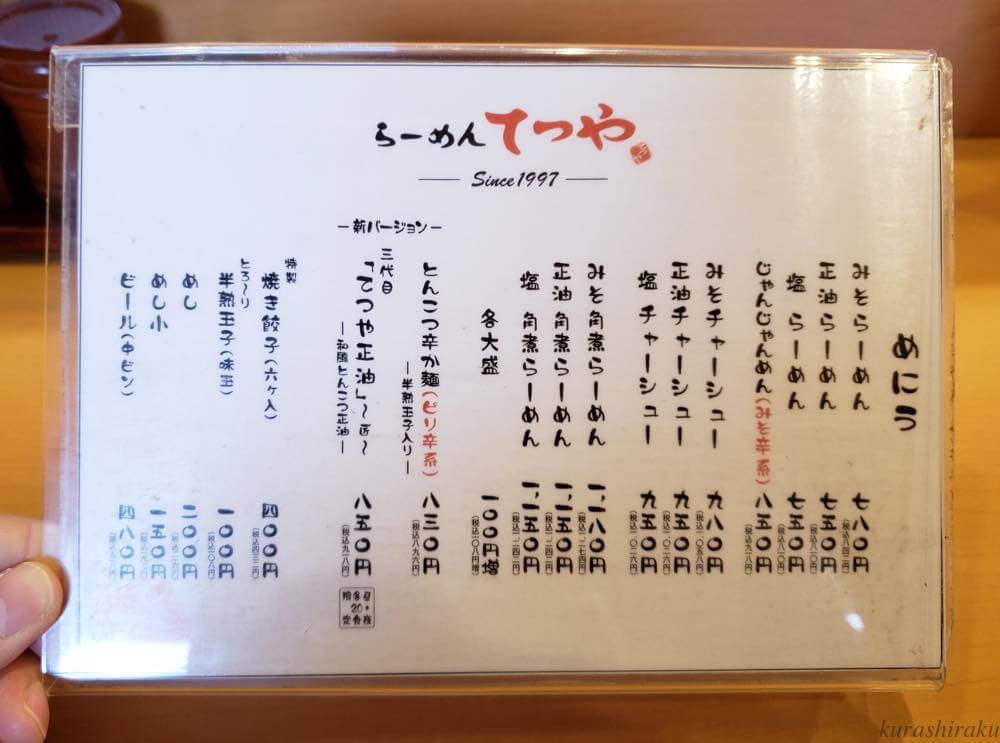 らーめんてつや
Since 1997
めにう
みそらーめん 七八〇円
(税込八四二円)
正油らーめん 七五〇円
(税込八一〇円)
塩らーめん 七五〇円
(税込八一〇円)
じゃんじゃんめん(みそ辛系) 八五〇円
(税込九一八円)
みそチャーシュー 九八〇円
(税込一、〇五八円)
正油チャーシュー 九五〇円
(税込一、〇二六円)
塩チャーシュー 九五〇円
(税込一、〇二六円)
みそ角煮らーめん 一、一八〇円
(税込一、二七四円)
正油角煮らーめん 一、一五〇円
(税込一、二四二円)
塩角煮らーめん 一、一五〇円
(税込一、二四二円)
各大盛 一〇〇円増
(税込一〇八円増)
とんこつ辛か麺(ピリ辛系) 八三〇円
(税込八九六円)
ー半熟玉子入りー
ー新バージョンー
三代目
「てつや正油」〜匠〜 八五〇円
(税込九一八円)
ー和風とんこつ正油ー
昼・夜
各20
限定食
特製
焼き餃子(六ヶ入) 四〇〇円
(税込四三二円)
とろ〜り
半熟玉子(味玉) 一〇〇円
(税込一〇八円)
めし 二〇〇円
(税込二一六円)
めし小 一五〇円
ビール(中ビン) 四八〇円
kurashiraku